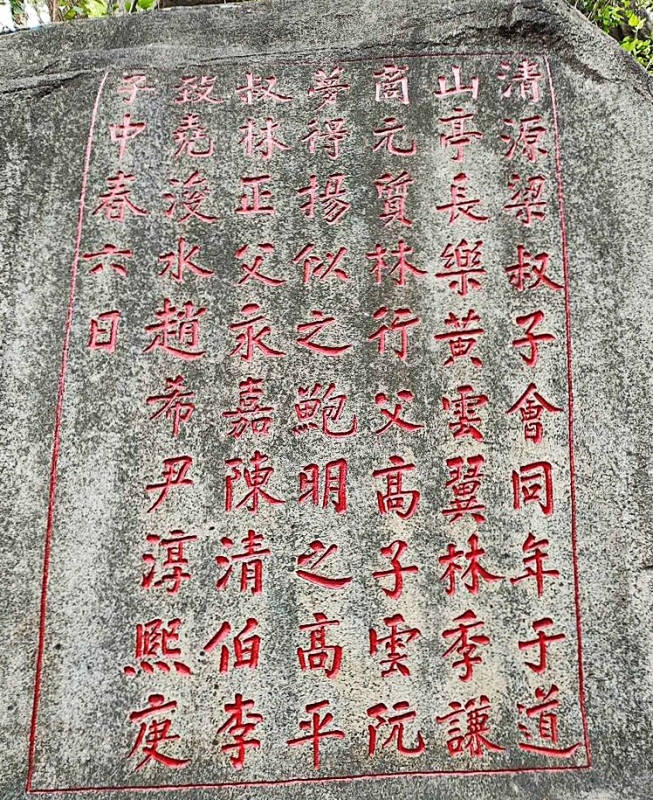 清源梁叔子會同年于道
山亭長樂黃雲翼林季謙
商元質林行父髙子雲阮
夢得揚似之鮑明之髙平
叔林正父永嘉陳清伯李
致堯浚水趙希尹淳熙庚
子中春六日